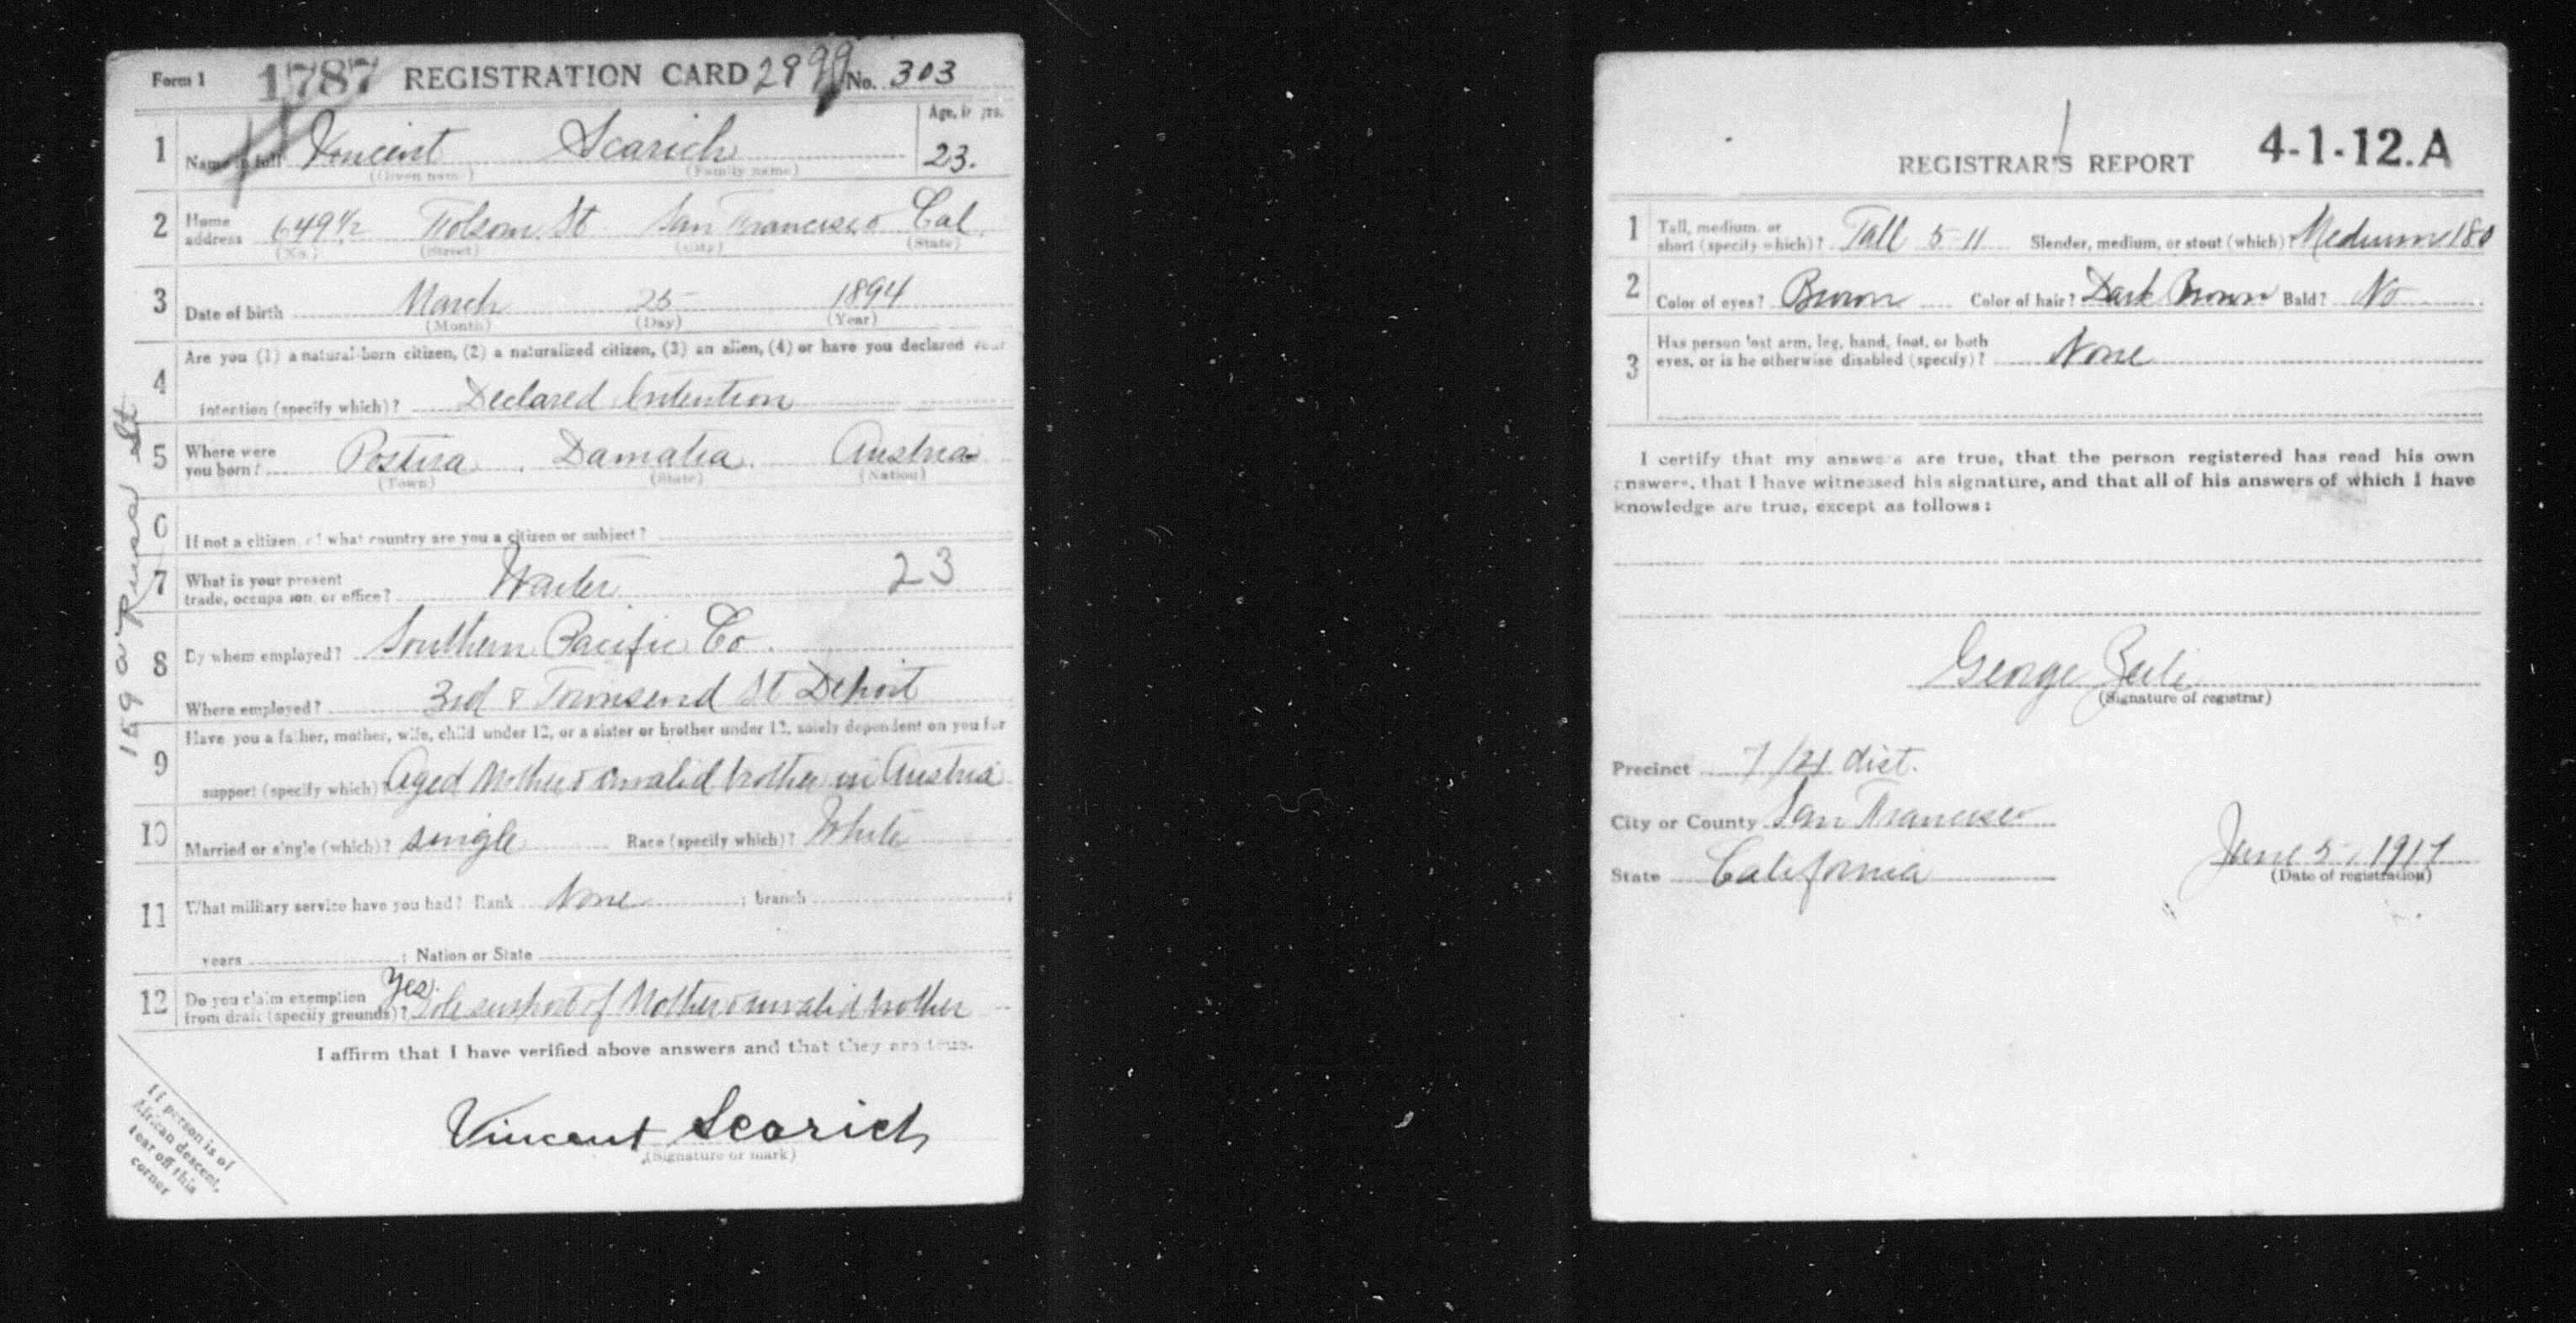 Form 1 1787 REGISTRATION CARD 2999 No. 303
Age, in yrs.
1 Name in full Vincent Scarich 23.
(Given name) (Family name)
2 Home address 649 1/2 Folsom St San Francisco Cal.
(No.) (Street) (City) (State)
3 Date of birth March 25 1894
(Month) (Day) (Year)
Are you (1) a natural-born citizen, (2) a naturalized citizen, (3) an alien, (4) or have you declared your
4 intention (specify which)? Declared Intention
5 Where were you born? Postira. Damatia. Austria
(Town) (State) (Nation)
6 If not a citizen, of what country are you a citizen or subject?
7 What is your present trade, occupation, or office? Waiter 23
8 By whom employed? Southern Pacific Co.
Where employed? 3rd & Townsend St Depot
Have you a father, mother, wife, child under 12, or a sister or brother under 12, solely dependent on you for
9 support (specify which)? Aged Mother & invalid brother in Austria
10 Married or single (which)? single Race (specify which)? White
11 What military service have you had? Rank None ; branch ;
years ; Nation or State
12 Do you claim exemption from draft (specify grounds)? Yes. Sole support of Mother & invalid brother
I affirm that I have verified above answers and that they are true.
Vincent Scarich
(Signature or mark)
If person is of
African descent,
tear off this
corner
Russ St
REGISTRAR'S REPORT 4-1-12.A
1 Tall, medium, or short (specify which)? Tall 5 11 Slender, medium, or stout (which)? Medium 180
2 Color of eyes? Brown Color of hair? Dark Brown Bald? No
3 Has person lost arm, leg, hand, foot, or both eyes, or is he otherwise disabled (specify)? None
I certify that my answers are true, that the person registered has read his own
answers, that I have witnessed his signature, and that all of his answers of which I have
knowledge are true, except as follows:
George
(Signature of registrar)
Precinct 7/21 dist.
City or County San Francisco
State California June 5, 1917
(Date of registration)